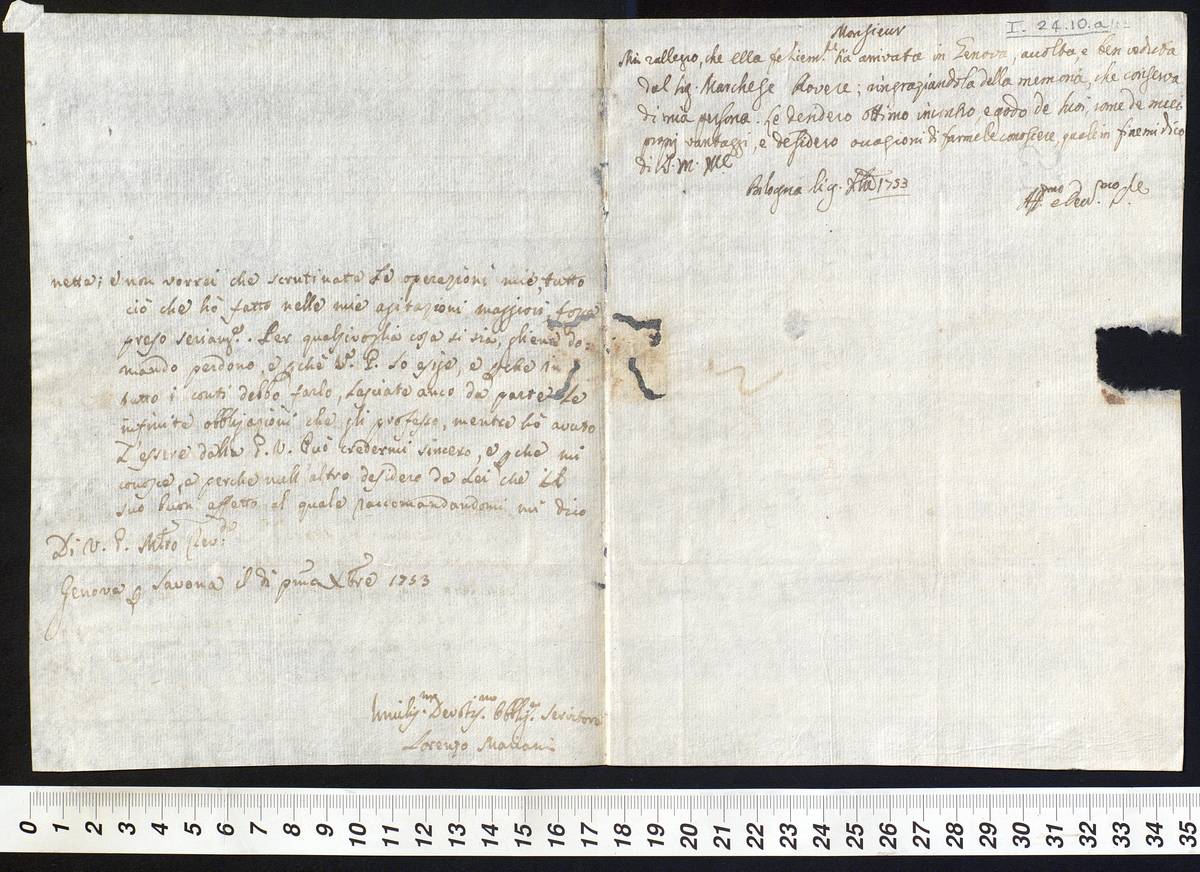 netta; e non vorrei che scrutinate le operazioni mie, tutto
ciò che hò fatto nelle mie agitazioni maggiori, fosse
preso seriam.te. Per qualsivoglia cosa si sia, gliene do-
mando perdono, e pchè V. P. lo esige, e pche in
tutto i conti debbo farlo, lasciate anco da parte le
infinite obbligazioni che gli professo, mentre hò avuto
l'essere dalla P. V. Può credermi sincero, e pchè mi
conosce, e perche null'altro desidero da Lei che il
suo buon affetto al quale raccomandandomi mi dico
Di V. P. Mtro Rev.do
Genova p Savona il di pma Xbre 1753
Umilis.mo Devotis.mo Obblig.mo Servitore
Lorenzo Mariani
I. 24.10.a
Monsieur
Mi rallegro, che ella felicem.te sia arrivata in Genova, accolta, e ben veduta
dal Sig. Marchese Rovere; ringraziandola della memoria, che conserva
di mia persona. Le desidero ottimo incontro, e godo de suoi, come de miei
propri vantaggi, e desidero occasioni di farmele conoscere, quale in fine mi dico
di V. M.
Bologna li 9. Xbre 1753
Aff.mo e Dev.mo
0 1 2 3 4 5 6 7 8 9 10 11 12 13 14 15 16 17 18 19 20 21 22 23 24 25 26 27 28 29 30 31 32 33 34 35